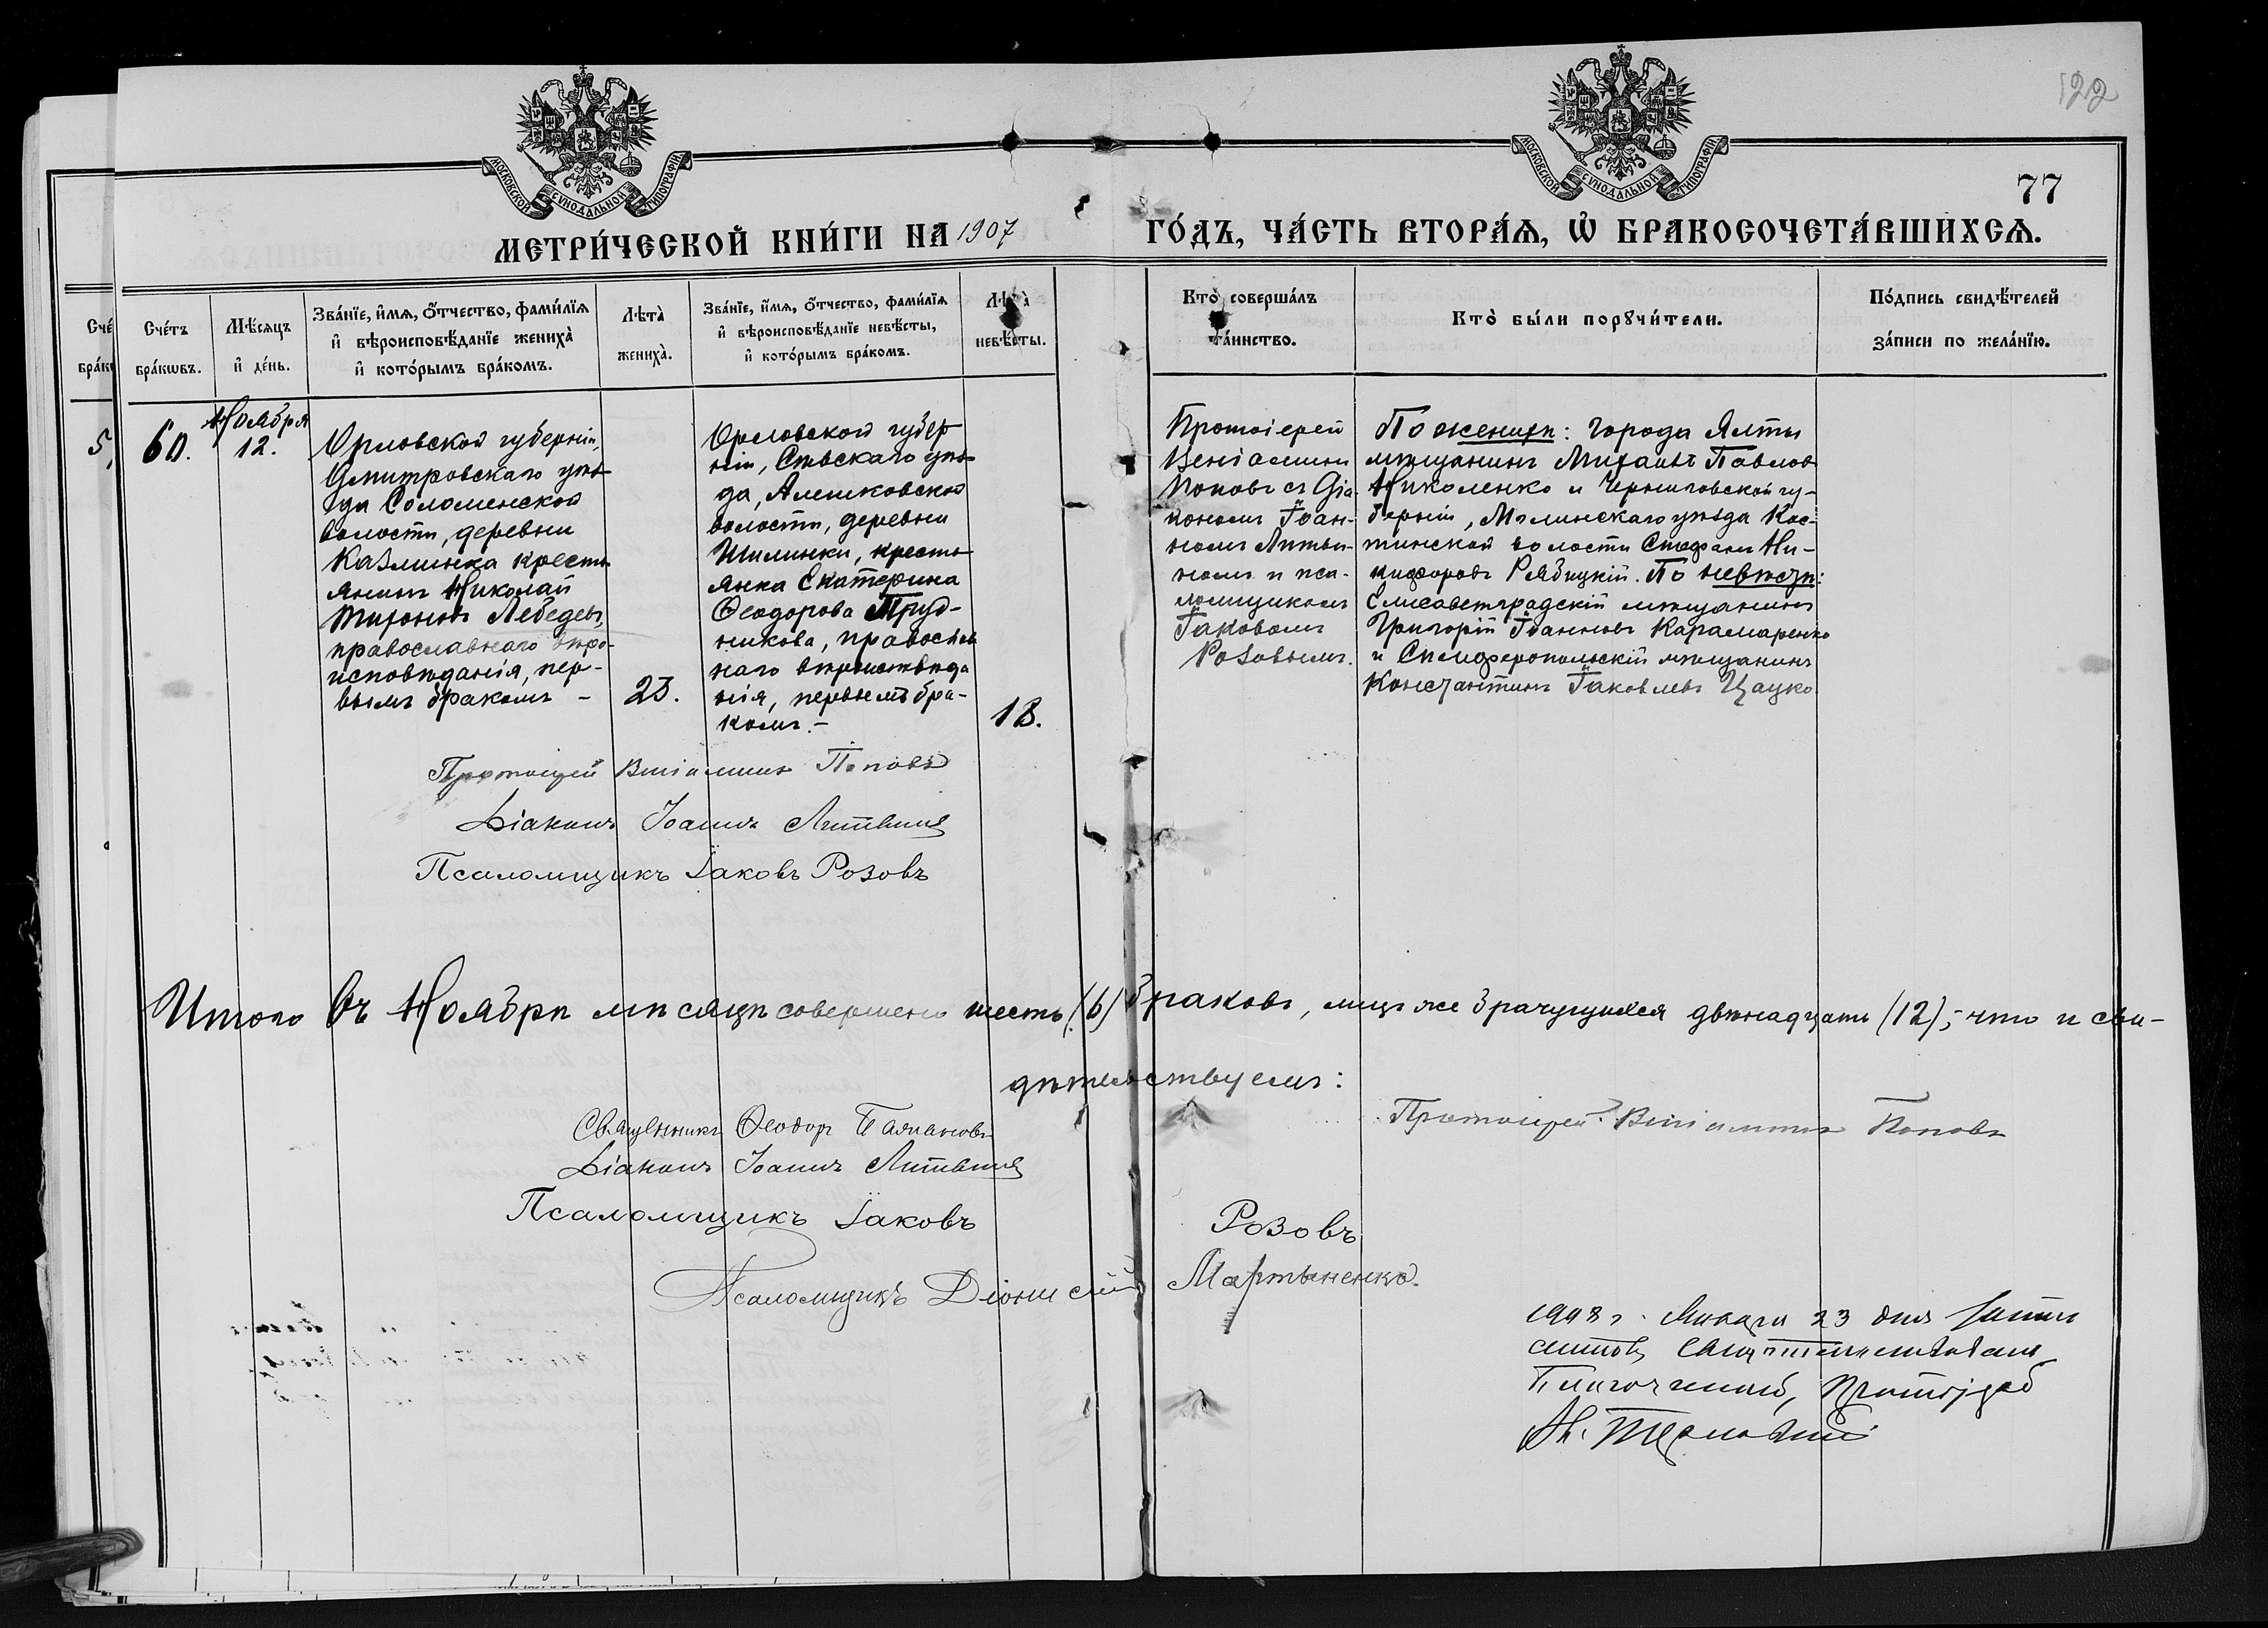 122
МОСКОВСКОЙ СѴНОДАЛЬНОЙ ТИПОГРАФІИ
МОСКОВСКОЙ СѴНОДАЛЬНОЙ ТИПОГРАФІИ
77
МЕТРИ́ЧЕСКОЙ КНИ́ГИ НА 1907 ГО́ДЪ, ЧА́СТЬ ВТОРА́Ѧ, Ѽ БРАКОСОЧЕТА́ВШИХСѦ.
Сче́тъ бра́кѡвъ.
Мѣ́сѧцъ и҆ де́нь.
Зва́нїе, и҆́мѧ, ѻ҆́тчество, фами́лїѧ
и҆ вѣроисповѣ́данїе жениха̀
и҆ кото́рымъ бра́комъ.
Лѣта̀ жениха̀.
Зва́нїе, и҆́мѧ, ѻ҆́тчество, фами́лїѧ
и҆ вѣроисповѣ́данїе невѣ́сты,
и҆ кото́рымъ бра́комъ.
Лѣта̀ невѣ́сты.
Кто̀ соверша́лъ
та́инство.
Кто̀ бы́ли порꙋчи́тели.
По́дпись свидѣ́телей
за́писи по жела́нїю.
60.
Ноября
12.
Орловской губерніи,
Дмитровскаго уѣз-
да Соломенской
волости, деревни
Казминка кресть-
янинъ Николай
Тихоновъ Лебедевъ,
православнаго вѣро-
исповѣданія, пер-
вымъ бракомъ –
23.
Орловской губер-
ніи, Сѣвскаго уѣз-
да, Алешковской
волости, деревни
Шилинки, кресть-
янка Екатерина
Ѳеодорова Труд-
никова, православ
наго вѣроисповѣда
нія, первымъ бра-
комъ. –
18.
Протоіерей
Веніаминъ
Поповъ съ Діа-
кономъ Іоан-
номъ Литви-
номъ и пса-
ломщикомъ
Іаковомъ
Розовымъ.
По женихѣ: города Ялты
мѣщанинъ Михаилъ Павлов
Николенко и Черниговской гу-
берніи, Мглинскаго уѣзда Кос-
тинской волости Стефанъ Ни-
кифоровъ Рябицкій. По невѣстѣ:
Елисаветградскій мѣщанинъ
Григорій Іоанновъ Карамаренко
и Симферопольскій мѣщанинъ
Константинъ Іаковлевъ Цацко
Протоіерей Веніаминъ Поповъ
Діаконъ Іоаннъ Литвинъ
Псаломщикъ Іаковъ Розовъ
Итого въ Ноябрѣ мѣсяцѣ совершено шесть (6) браковъ, лицъ же брачущихся двѣнадцать (12), – что и сви-
дѣтельствуемъ:
Протоіерей Веніаминъ Поповъ
Священникъ Ѳеодоръ
Діаконъ Іоаннъ Литвинъ
Псаломщикъ Іаковъ Розовъ
Псаломщикъ Діонисій Мартыненко.
1908 г. Января 23 дня
Благочинный, Протоіерей